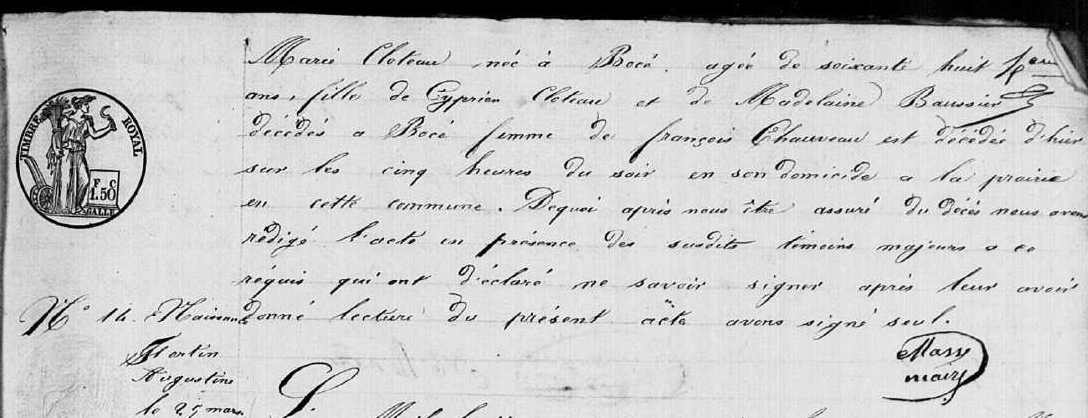 Marie Cloteau née à Bocé. agée de soixante huit
ans, fille de Cyprien Cloteau et de Madelaine Baussier
décédés a Bocé femme de françois Chauveau est décédée d'hier
sur les cinq heures du soir en son domicide a la prairie
en cette commune. Dequoi après nous être assuré du décès nous avons
rédigé l'acte en présence des susdits témoins majeurs a ce
réquis qui ont déclaré ne savoir signer après leur avoir
donné lecture du présent acte avons signé seul.
Massy
maire
TIMBRE ROYAL
F C
1.50
N° 14. Naissance
Martin
Augustine
le 25 mars